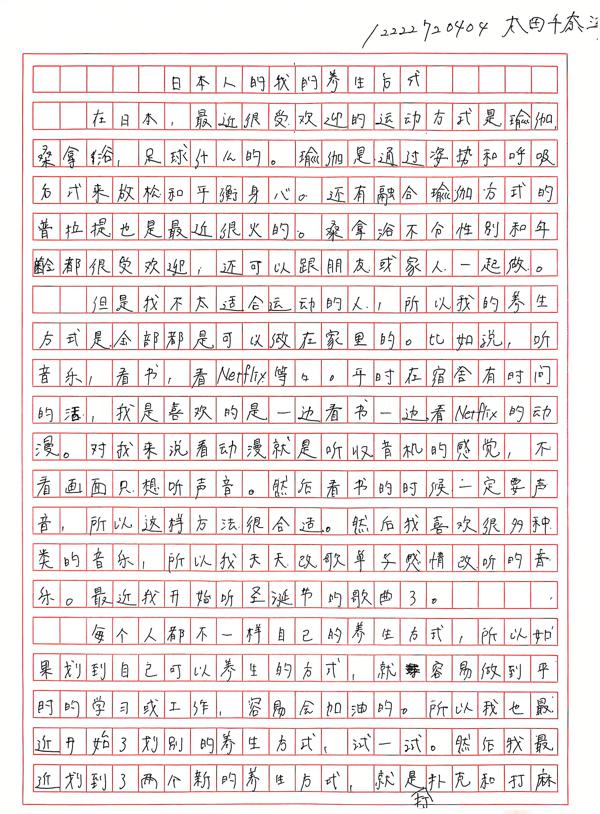 12222720404 太田千奈
日本人的我的养生方式
在日本,最近很受欢迎的运动方式是瑜伽,
桑拿浴,足球什么的。瑜伽是通过姿势和呼吸
方式来放松和平衡身心。还有融合瑜伽方式的
普拉提也是最近很火的。桑拿浴不分性别和年
龄都很受欢迎,还可以跟朋友或家人一起做。
但是我不太适合运动的人,所以我的养生
方式是全部都是可以做在家里的。比如说,听
音乐,看书,看Netflix等々。平时在宿舍有时间
的话,我是喜欢的是一边看书一边看Netflix的动
漫。对我来说看动漫就是听收音机的感觉,不
看画面只想听声音。然后看书的时候一定要声
音,所以这样方法很合适。然后我喜欢很多种
类的音乐,所以我天天改歌单予感情改听的音
乐。最近我开始听圣诞节的歌曲了。
每个人都不一样自己的养生方式,所以如
果划到自己可以养生的方式,就容易做到平
时的学习或工作,容易会加油的。所以我也最
近开始了划别的养生方式,试一试。然后我最
近划到了两个新的养生方式,就是打扑克和打麻